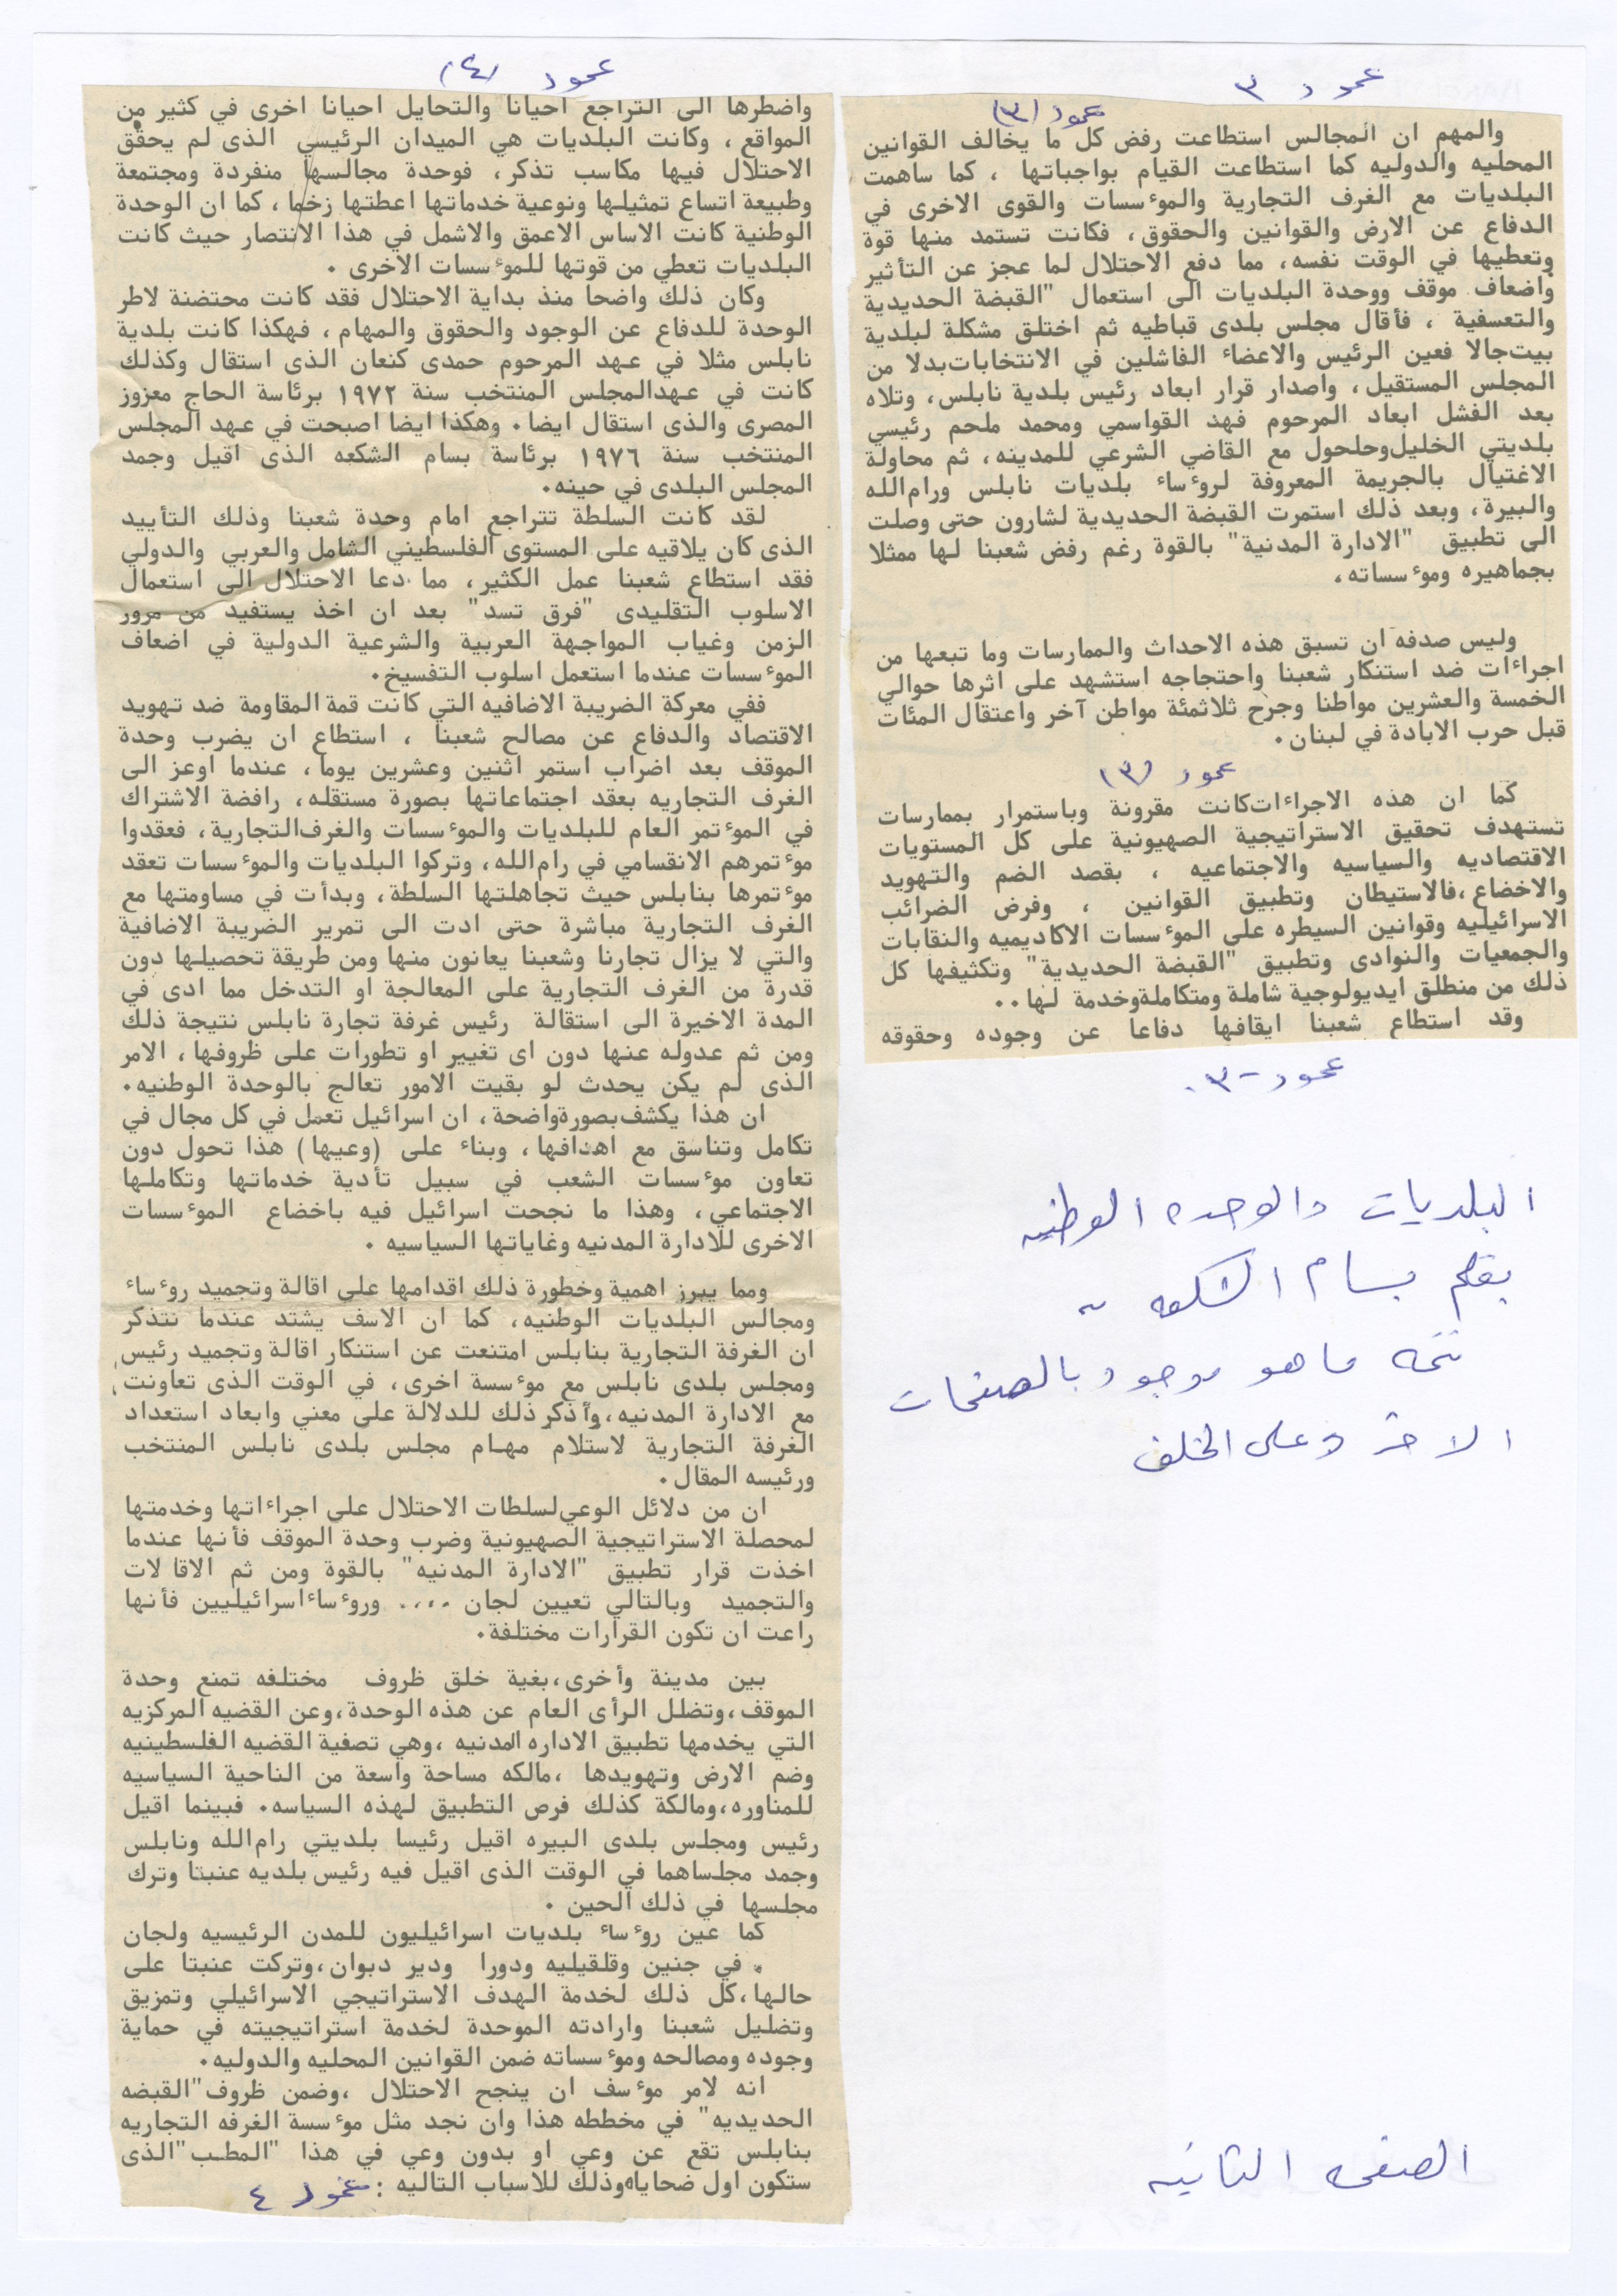 عمود ٣
عمود (٣)
والمهم ان المجالس استطاعت رفض كل ما يخالف القوانين
المحليه والدوليه كما استطاعت القيام بواجباتها ، كما ساهمت
البلديات مع الغرف التجارية والموٴسسات والقوى الاخرى في
الدفاع عن الارض والقوانين والحقوق، فكانت تستمد منها قوة
وتعطيها في الوقت نفسه، مما دفع الاحتلال لما عجز عن التأثير
واضعاف موقف ووحدة البلديات الى استعمال "القبضة الحديدية
والتعسفية ، فأقال مجلس بلدى قباطيه ثم اختلق مشكلة لبلدية
بيت‌جالا فعين الرئيس والاعضاء الفاشلين في الانتخابات‌بدلا من
المجلس المستقيل، واصدار قرار ابعاد رئيس بلدية نابلس، وتلاه
بعد الفشل ابعاد المرحوم فهد القواسمي ومحمد ملحم رئيسي
بلديتي الخليل‌وحلحول مع القاضي الشرعي للمدينه، ثم محاولة
الاغتيال بالجريمة المعروفة لروٴساء بلديات نابلس ورام‌الله
والبيرة، وبعد ذلك استمرت القبضة الحديدية لشارون حتى وصلت
الى تطبيق "الادارة المدنية" بالقوة رغم رفض شعبنا لها ممثلا
بجماهيره وموٴسساته،
وليس صدفة ان تسبق هذه الاحداث والممارسات وما تبعها من
اجراءات ضد استنكار شعبنا واحتجاجه استشهد على اثرها حوالي
الخمسة والعشرين مواطنا وجرح ثلاثمئة مواطن آخر واعتقال المئات
قبل حرب الابادة في لبنان.
عمود (٣)
كما ان هذه الاجراءات‌كانت مقرونة وباستمرار بممارسات
تستهدف تحقيق الاستراتيجية الصهيونية على كل المستويات
الاقتصاديه والسياسيه والاجتماعيه ، بقصد الضم والتهويد
والاخضاع،فالاستيطان وتطبيق القوانين ، وفرض الضرائب
الاسرائيليه وقوانين السيطره على الموٴسسات الاكاديميه والنقابات
والجمعيات والنوادى وتطبيق "القبضة الحديدية" وتكثيفها كل
ذلك من منطلق ايديولوجية شاملة ومتكاملةوخدمة لها..
وقد استطاع شعبنا ايقافها دفاعا عن وجوده وحقوقه
عمود -٣.
البلديات والوحده الوطنيه
بقلم بسام الشكعه
تتمه ما هو موجود بالصفحات
الاخر وعلى الخلف
الصفحه الثانيه
عمود (٤)
واضطرها الى التراجع احيانا والتحايل احيانا اخرى في كثير من
المواقع ، وكانت البلديات هي الميدان الرئيسي الذى لم يحقق
الاحتلال فيها مكاسب تذكر، فوحدة مجالسها منفردة ومجتمعة
وطبيعة اتساع تمثيلها ونوعية خدماتها اعطتها زخما ، كما ان الوحدة
الوطنية كانت الاساس الاعمق والاشمل في هذا الانتصار حيث كانت
البلديات تعطي من قوتها للموٴسسات الاخرى .
وكان ذلك واضحا منذ بداية الاحتلال فقد كانت محتضنة لاطر
الوحدة للدفاع عن الوجود والحقوق والمهام ، فهكذا كانت بلدية
نابلس مثلا في عهد المرحوم حمدى كنعان الذى استقال وكذلك
كانت في عهدالمجلس المنتخب سنة ١٩٧٢ برئاسة الحاج معزوز
المصرى والذى استقال ايضا. وهكذا ايضا اصبحت في عهد المجلس
المنتخب سنة ١٩٧٦ برئاسة بسام الشكعه الذى اقيل وجمد
المجلس البلدى في حينه.
لقد كانت السلطة تتراجع امام وحدة شعبنا وذلك التأييد
الذى كان يلاقيه على المستوى الفلسطيني الشامل والعربي والدولي
فقد استطاع شعبنا عمل الكثير، مما دعا الاحتلال الى استعمال
الاسلوب التقليدى "فرق تسد" بعد ان اخذ يستفيد من مرور
الزمن وغياب المواجهة العربية والشرعية الدولية في اضعاف
الموٴسسات عندما استعمل اسلوب التفسيخ.
ففي معركة الضريبة الاضافيه التي كانت قمة المقاومة ضد تهويد
الاقتصاد والدفاع عن مصالح شعبنا ، استطاع ان يضرب وحدة
الموقف بعد اضراب استمر اثنين وعشرين يوما، عندما اوعز الى
الغرف التجاريه بعقد اجتماعاتها بصورة مستقله، رافضة الاشتراك
في الموٴتمر العام للبلديات والموٴسسات والغرف‌التجارية، فعقدوا
موٴتمرهم الانقسامي في رام‌الله، وتركوا البلديات والموٴسسات تعقد
موٴتمرها بنابلس حيث تجاهلتها السلطة، وبدأت في مساومتها مع
الغرف التجارية مباشرة حتى ادت الى تمرير الضريبة الاضافية
والتي لا يزال تجارنا وشعبنا يعانون منها ومن طريقة تحصيلها دون
قدرة من الغرف التجارية على المعالجة او التدخل مما ادى في
المدة الاخيرة الى استقالة رئيس غرفة تجارة نابلس نتيجة ذلك
ومن ثم عدوله عنها دون اى تغيير او تطورات على ظروفها، الامر
الذى لم يكن يحدث لو بقيت الامور تعالج بالوحدة الوطنيه.
ان هذا يكشف‌بصورةواضحة، ان اسرائيل تعمل في كل مجال في
تكامل وتناسق مع اهدافها، وبناء على (وعيها) هذا تحول دون
تعاون موٴسسات الشعب في سبيل تأدية خدماتها وتكاملها
الاجتماعي، وهذا ما نجحت اسرائيل فيه باخضاع الموٴسسات
الاخرى للادارة المدنيه وغاياتها السياسيه .
ومما يبرز اهمية وخطورة ذلك اقدامها على اقالة وتجميد روٴساء
ومجالس البلديات الوطنيه، كما ان الاسف يشتد عندما نتذكر
ان الغرفة التجارية بنابلس امتنعت عن استنكار اقالة وتجميد رئيس
ومجلس بلدى نابلس مع موٴسسة اخرى، في الوقت الذى تعاونت
مع الادارة المدنيه،وأذكر ذلك للدلالة على معني وابعاد استعداد
الغرفة التجارية لاستلام مهام مجلس بلدى نابلس المنتخب
ورئيسه المقال.
ان من دلائل الوعي‌لسلطات الاحتلال على اجراءاتها وخدمتها
لمحصلة الاستراتيجية الصهيونية وضرب وحدة الموقف فأنها عندما
اخذت قرار تطبيق "الادارة المدنيه" بالقوة ومن ثم الاقالات
والتجميد وبالتالي تعيين لجان .... وروٴساء‌اسرائيليين فأنها
راعت ان تكون القرارات مختلفة.
بين مدينة وأخرى،بغية خلق ظروف مختلفه تمنع وحدة
الموقف،وتضلل الرأى العام عن هذه الوحدة،وعن القضيه المركزيه
التي يخدمها تطبيق الاداره المدنيه ،وهي تصفية القضيه الفلسطينيه
وضم الارض وتهويدها ،مالكه مساحة واسعة من الناحية السياسيه
للمناوره،ومالكة كذلك فرص التطبيق لهذه السياسه. فبينما اقيل
رئيس ومجلس بلدى البيره اقيل رئيسا بلديتي رام‌الله ونابلس
وجمد مجلساهما في الوقت الذى اقيل فيه رئيس بلديه عنبتا وترك
مجلسها في ذلك الحين .
كما عين روٴساء بلديات اسرائيليون للمدن الرئيسيه ولجان
. في جنين وقلقيليه ودورا ودير دبوان،وتركت عنبتا على
حالها،كل ذلك لخدمة الهدف الاستراتيجي الاسرائيلي وتمزيق
وتضليل شعبنا وارادته الموحدة لخدمة استراتيجيته في حماية
وجوده ومصالحه وموٴسساته ضمن القوانين المحليه والدوليه.
انه لامر موٴسف ان ينجح الاحتلال ،وضمن ظروف"القبضه
الحديديه" في مخططه هذا وان نجد مثل موٴسسة الغرفه التجاريه
بنابلس تقع عن وعي او بدون وعي في هذا "المطب"الذى
ستكون اول ضحاياه‌وذلك للاسباب التاليه : عمود ٤